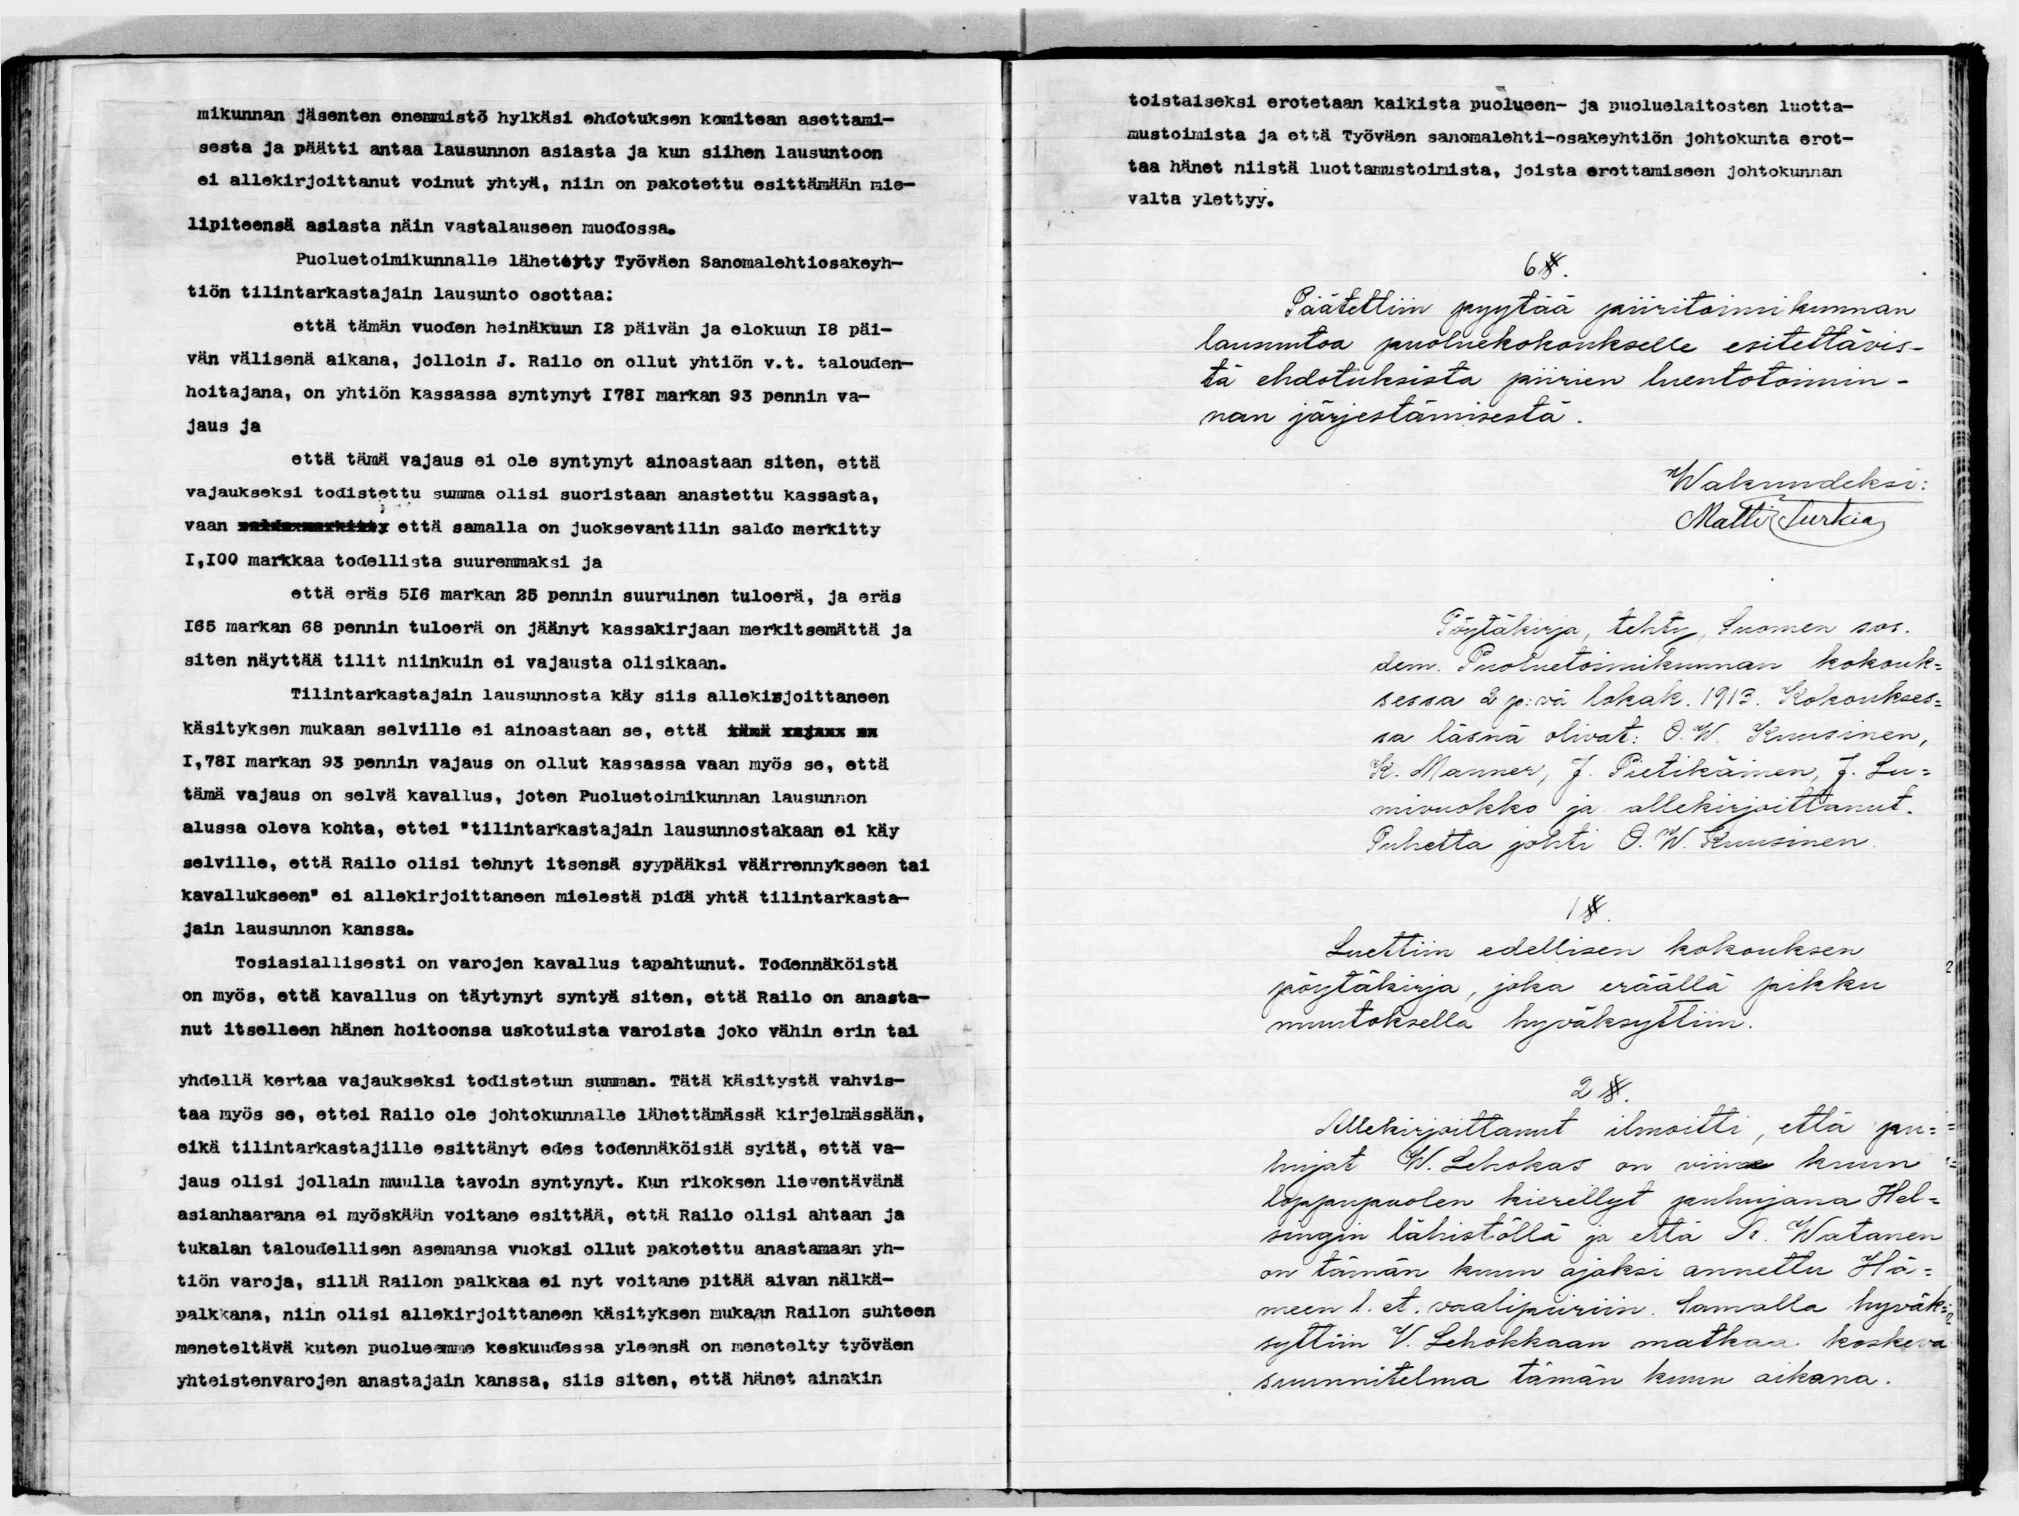 mikunnan jäsenten enemmistö hylkäsi ehdotuksen komitean asettami-
sesta ja päätti antaa lausunnon asiasta ja kun siihen lausuntoon
ei allekirjoittanut voinut yhtyä, niin on pakotettu esittämään mie-
lipiteensä asiasta näin vastalauseen muodossa.
Puoluetoimikunnalle lähetetty Työväen Sanomalehtiosakeyh-
tiön tilintarkastajain lausunto osottaa:
että tämän vuoden heinäkuun I2 päivän ja elokuun I8 päi-
vän välisenä aikana, jolloin J. Railo on ollut yhtiön v.t. talouden-
hoitajana, on yhtiön kassassa syntynyt I78I markan 93 pennin va-
jaus ja
että tämä vajaus ei ole syntynyt ainoastaan siten, että
vajaukseksi todistettu summa olisi suoristaan anastettu kassasta,
vaan että samalla on juoksevantilin saldo merkitty
I,I00 markkaa todellista suuremmaksi ja
että eräs 5I6 markan 25 pennin suuruinen tuloerä, ja eräs
I65 markan 68 pennin tuloerä on jäänyt kassakirjaan merkitsemättä ja
siten näyttää tilit niinkuin ei vajausta olisikaan.
Tilintarkastajain lausunnosta käy siis allekirjoittaneen
käsityksen mukaan selville ei ainoastaan se, että
I,78I markan 93 pennin vajaus on ollut kassassa vaan myös se, että
tämä vajaus on selvä kavallus, joten Puoluetoimikunnan lausunnon
alussa oleva kohta, ettei "tilintarkastajain lausunnostakaan ei käy
selville, että Railo olisi tehnyt itsensä syypääksi väärrennykseen tai
kavallukseen" ei allekirjoittaneen mielestä pidä yhtä tilintarkasta-
jain lausunnon kanssa.
Tosiasiallisesti on varojen kavallus tapahtunut. Todennäköistä
on myös, että kavallus on täytynyt syntyä siten, että Railo on anasta-
nut itselleen hänen hoitoonsa uskotuista varoista joko vähin erin tai
yhdellä kertaa vajaukseksi todistetun summan. Tätä käsitystä vahvis-
taa myös se, ettei Railo ole johtokunnalle lähettämässä kirjelmässään,
eikä tilintarkastajille esittänyt edes todennäköisiä syitä, että va-
jaus olisi jollain muulla tavoin syntynyt. Kun rikoksen lieventävänä
asianhaarana ei myöskään voitane esittää, että Railo olisi ahtaan ja
tukalan taloudellisen asemansa vuoksi ollut pakotettu anastamaan yh-
tiön varoja, sillä Railon palkkaa ei nyt voitane pitää aivan nälkä-
palkkana, niin olisi allekirjoittaneen käsityksen mukaan Railon suhteen
meneteltävä kuten puolueemme keskuudessa yleensä on menetelty työväen
yhteistenvarojen anastajain kanssa, siis siten, että hänet ainakin
toistaiseksi erotetaan kaikista puolueen- ja puoluelaitosten luotta-
mustoimista ja että Työväen sanomalehti-osakeyhtiön johtokunta erot-
taa hänet niistä luottamustoimista, joista erottamiseen johtokunnan
valta ylettyy.
6 §.
Päätettiin pyytää piiritoimikunnan
lausuntoa puoluekokoukselle esitettävis-
tä ehdotuksista piirien luentotoimin-
nan järjestämisestä.
Wakuudeksi:
Matti Turkia
Pöytäkirja, tehty Suomen sos.
dem. Puoluetoimikunnan kokouk=
sessa 2 p:vä lokak. 1913. Kokoukses=
sa läsnä olivat: O. W. Kuusinen,
K. Manner, J. Pietikäinen, J. Lu=
mivuokko ja allekirjoittanut.
Puhetta johti O. W. Kuusinen.
1 §.
Luettiin edellisen kokouksen
pöytäkirja, joka eräällä pikku
muutoksella hyväksyttiin.
2 §.
Allekirjoittanut ilmoitti, että pu=
hujat W. Lehokas on viime kuun
loppupuolen kierellyt puhujana Hel=
singin lähistöllä ja että Watanen
on tämän kuun ajaksi annettu Hä=
meen l. et. vaalipiiriin. Samalla hyväk=
syttiin V. Lehokkaan matkaa koskeva
suunnitelma tämän kuun aikana.